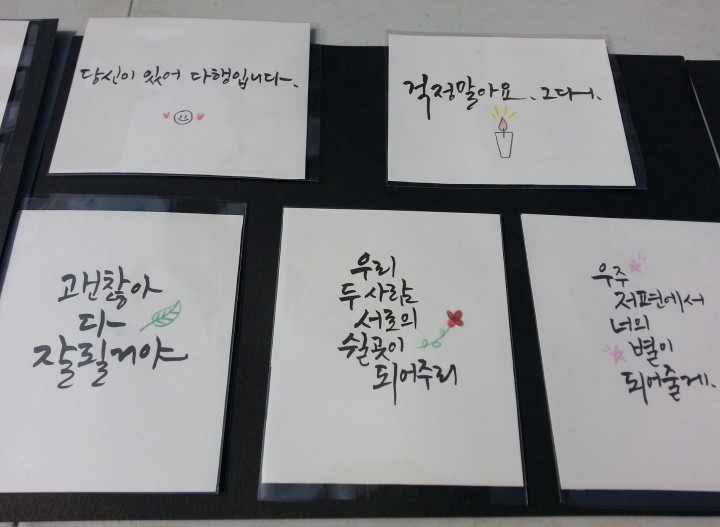 당신이 있어 다행입니다.
걱정말아요. 그대.
괜찮아
다
잘될거야
우리
두 사람
서로의
쉴곳이
되어주리
우주
저편에서
너의
별이
되어줄게.